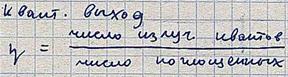 Квант. выход
η = число излуч квантов
число поглощенных